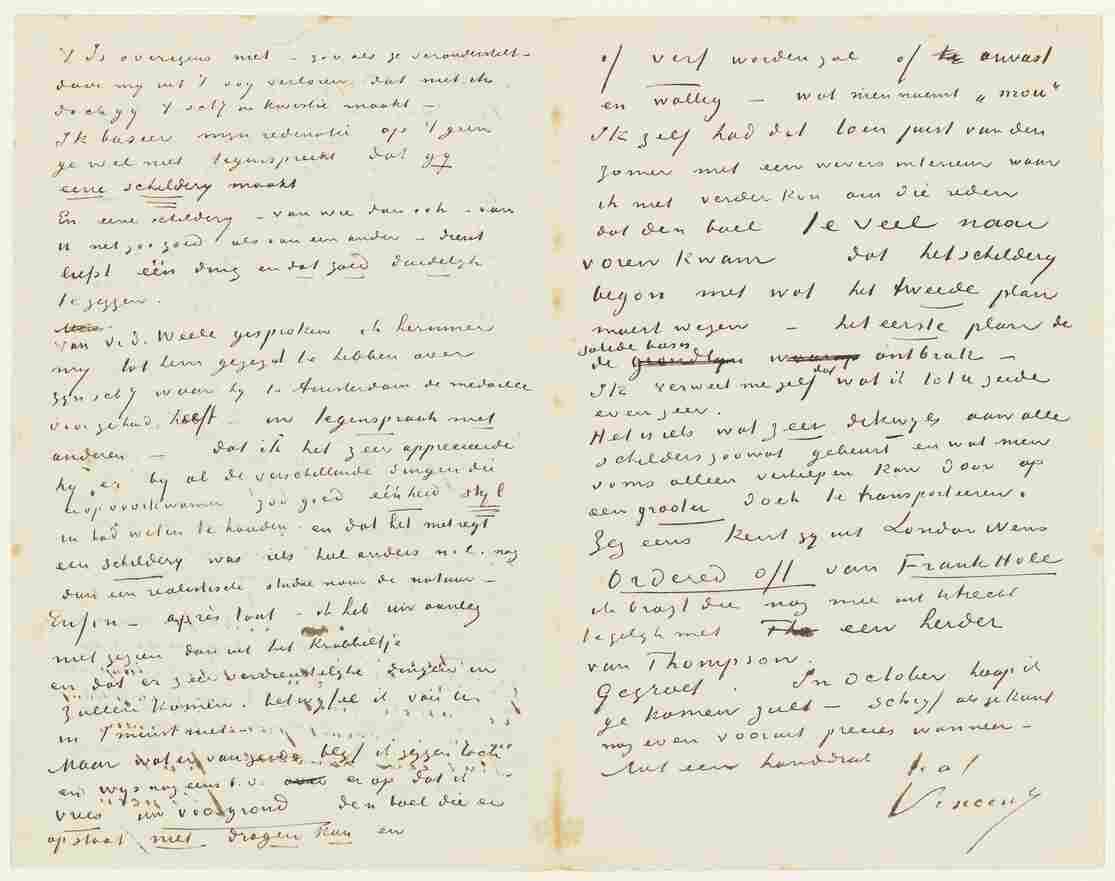 't Is overigens niet – zooals ge veronderstelt –
door my uit 't oog verloren, dat niet ik
doch gy 't schy in kwestie maakt –
Ik baseer mijn redenatie op 't geen
ge wel niet tegenspreekt dat gy
eene schildery maakt
En eene schildery – van wie dan ook – van
U net zoo goed als van een ander – dient
liefst één ding en dat goed duidelyk
te zeggen.
Van v.d. Weele gesproken ik herinner
my tot hem gezegd te hebben over
zyn schy waar hy te Amsterdam de medaille
voor gehad heeft – in tegenspraak met
anderen – dat ik het zeer apprecieerde
hy er by al de verschillende dingen die
er op voorkwamen zoo goed éénheid styl
in had weten te houden en dat het met regt
een schildery was iets heel anders n.l. nog
dan een realistische studie naar de natuur –
Enfin – après tout – ik heb uw aanleg
niet gezien dan uit het Krabbeltje
en dat er zeer verdienstelyke dingen in
zullen komen, betwyfel ik van ten
in 't minst niet –
Maar wat er van zy blyf ik zeggen
en wys nog eens t.v. er op dat ik
vrees uw voorgrond den boel die er
op staat niet dragen kan en
of verf worden zal of onvast
en wollig – wat men noemt „mou"
Ik zelf had dat toen juist van den
zomer met een wevers interieur waar
ik niet verder kon om die reden
dat den boel te veel naar
voren kwam dat het schildery
begon met wat het tweede plan
moest wezen – het eerste plan de
solide basis
de ontbrak –
Ik verweet me zelf dat wat ik tot U zeide
evenzeer.
Het is iets wat zeer dikwyls aan alle
schilders zoowat gebeurt en wat men
soms alleen verhelpen kan door op
een grooter doek te transporteeren.
Zeg eens kent gy uit London News
Ordered off van Frank Holl
ik bragt die nog mee uit Utrecht
tegelyk met een herder
van Thompson.
Gegroet. In October hoop ik
ge komen zult – schryf als ge kunt
nog even vooruit precies wanneer –
Met een handdruk t.à t.
Vincent